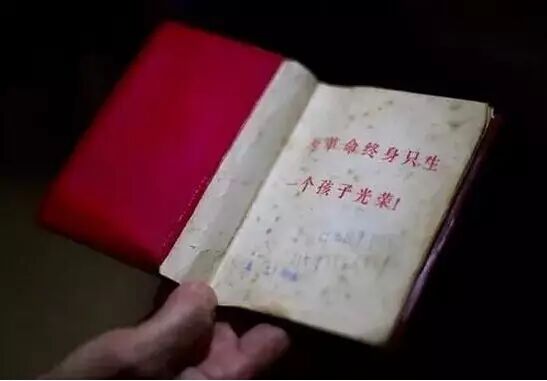 为革命终身只生
一个孩子光荣!